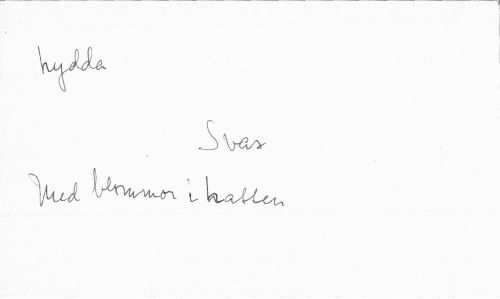 hydda
Svar
Med blommor i hatten